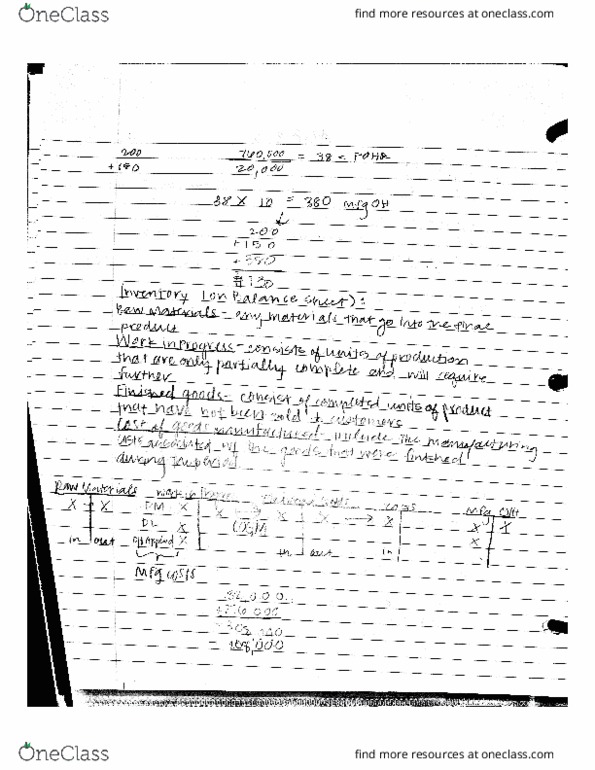 OneClass
find more resources at oneclass.com
200
+180
760,000 = 38 = POHR
20,000
38 X 10 = 380 Mfg OH
200
+150
+380
Inventory (on Balance sheet):
Raw Materials - any materials that go into the
product
Work in Progress - consists of units of production
that are only partially complete and will require
further
Finished goods - consist of completed units of product
that have not been sold to customers
Cost of goods manufactured - include the manufacturing
costs associated w/ the goods that were finished
during the period
Raw Materials Work in Mfg OVH
X X DM X X X X X X X
DL X COGM X
in out Applied X in out in
Mfg costs
168,000
OneClass
find more resources at oneclass.com